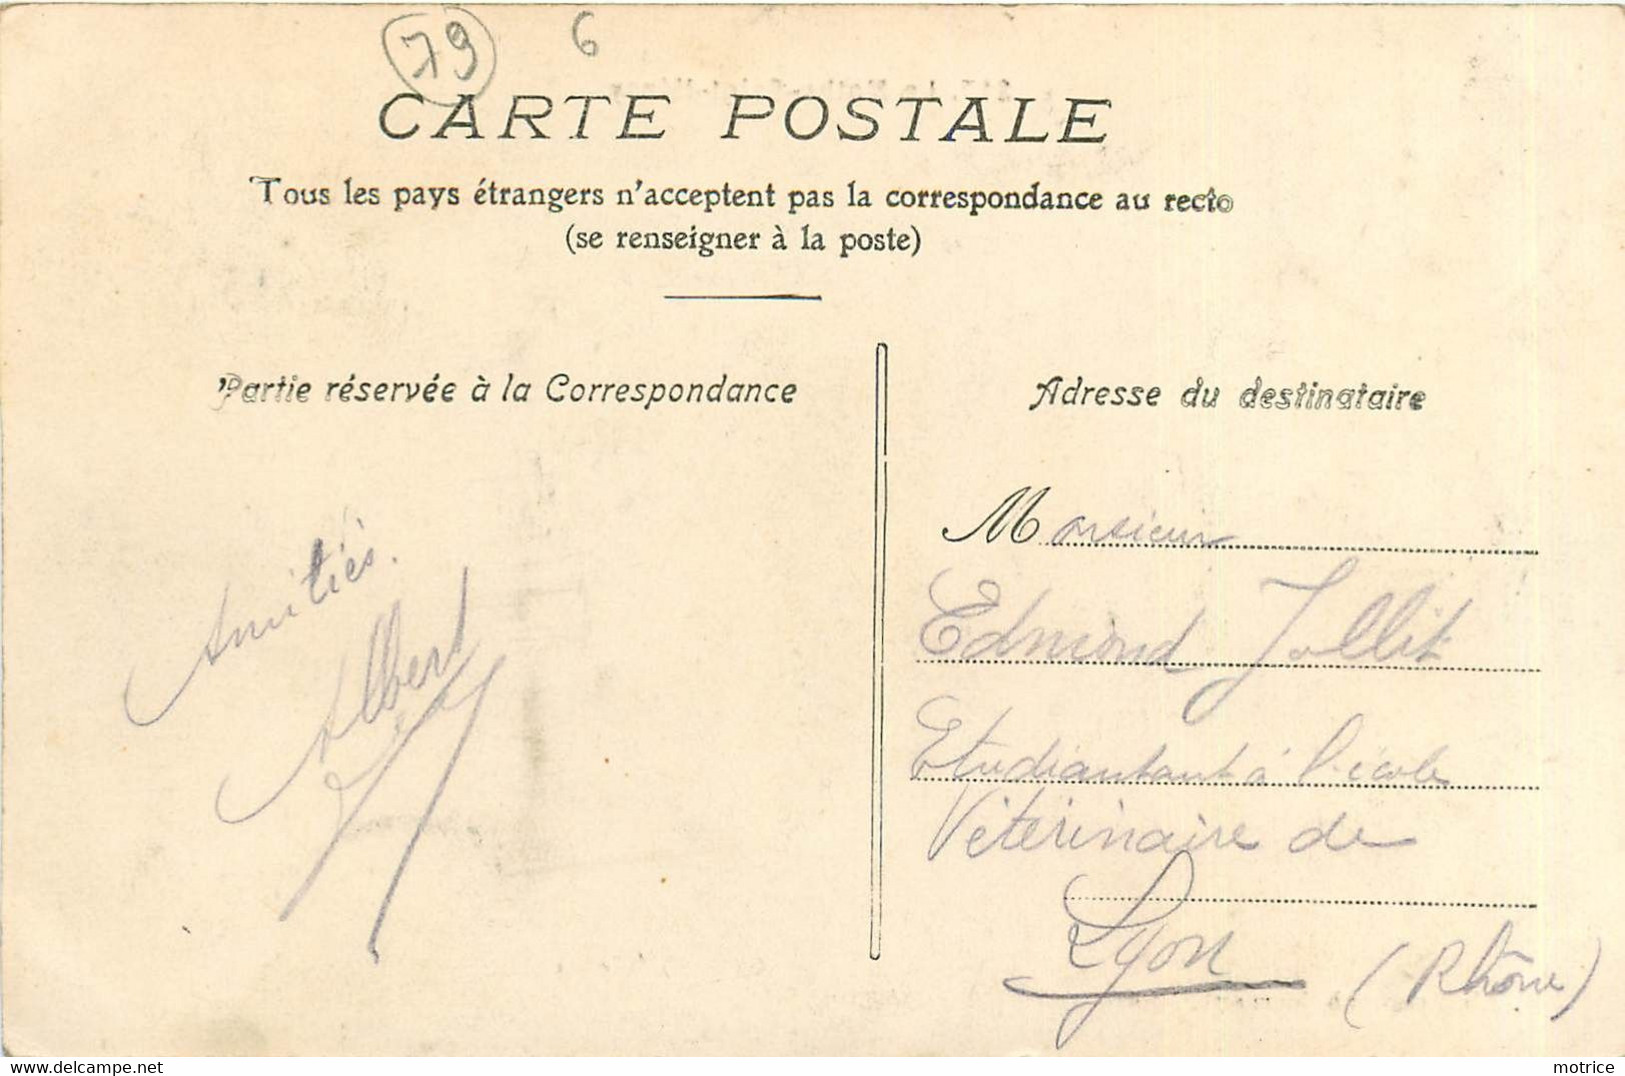 79 6
CARTE POSTALE
Tous les pays étrangers n'acceptent pas la correspondance au recto
(se renseigner à la poste)
Partie réservée à la Correspondance
Adresse du destinataire
Amitiés.
Albert
Monsieur
Edmond Jollit
Etudiant à l'école
Vétérinaire de
Lyon (Rhône)
delcampe.net
motrice